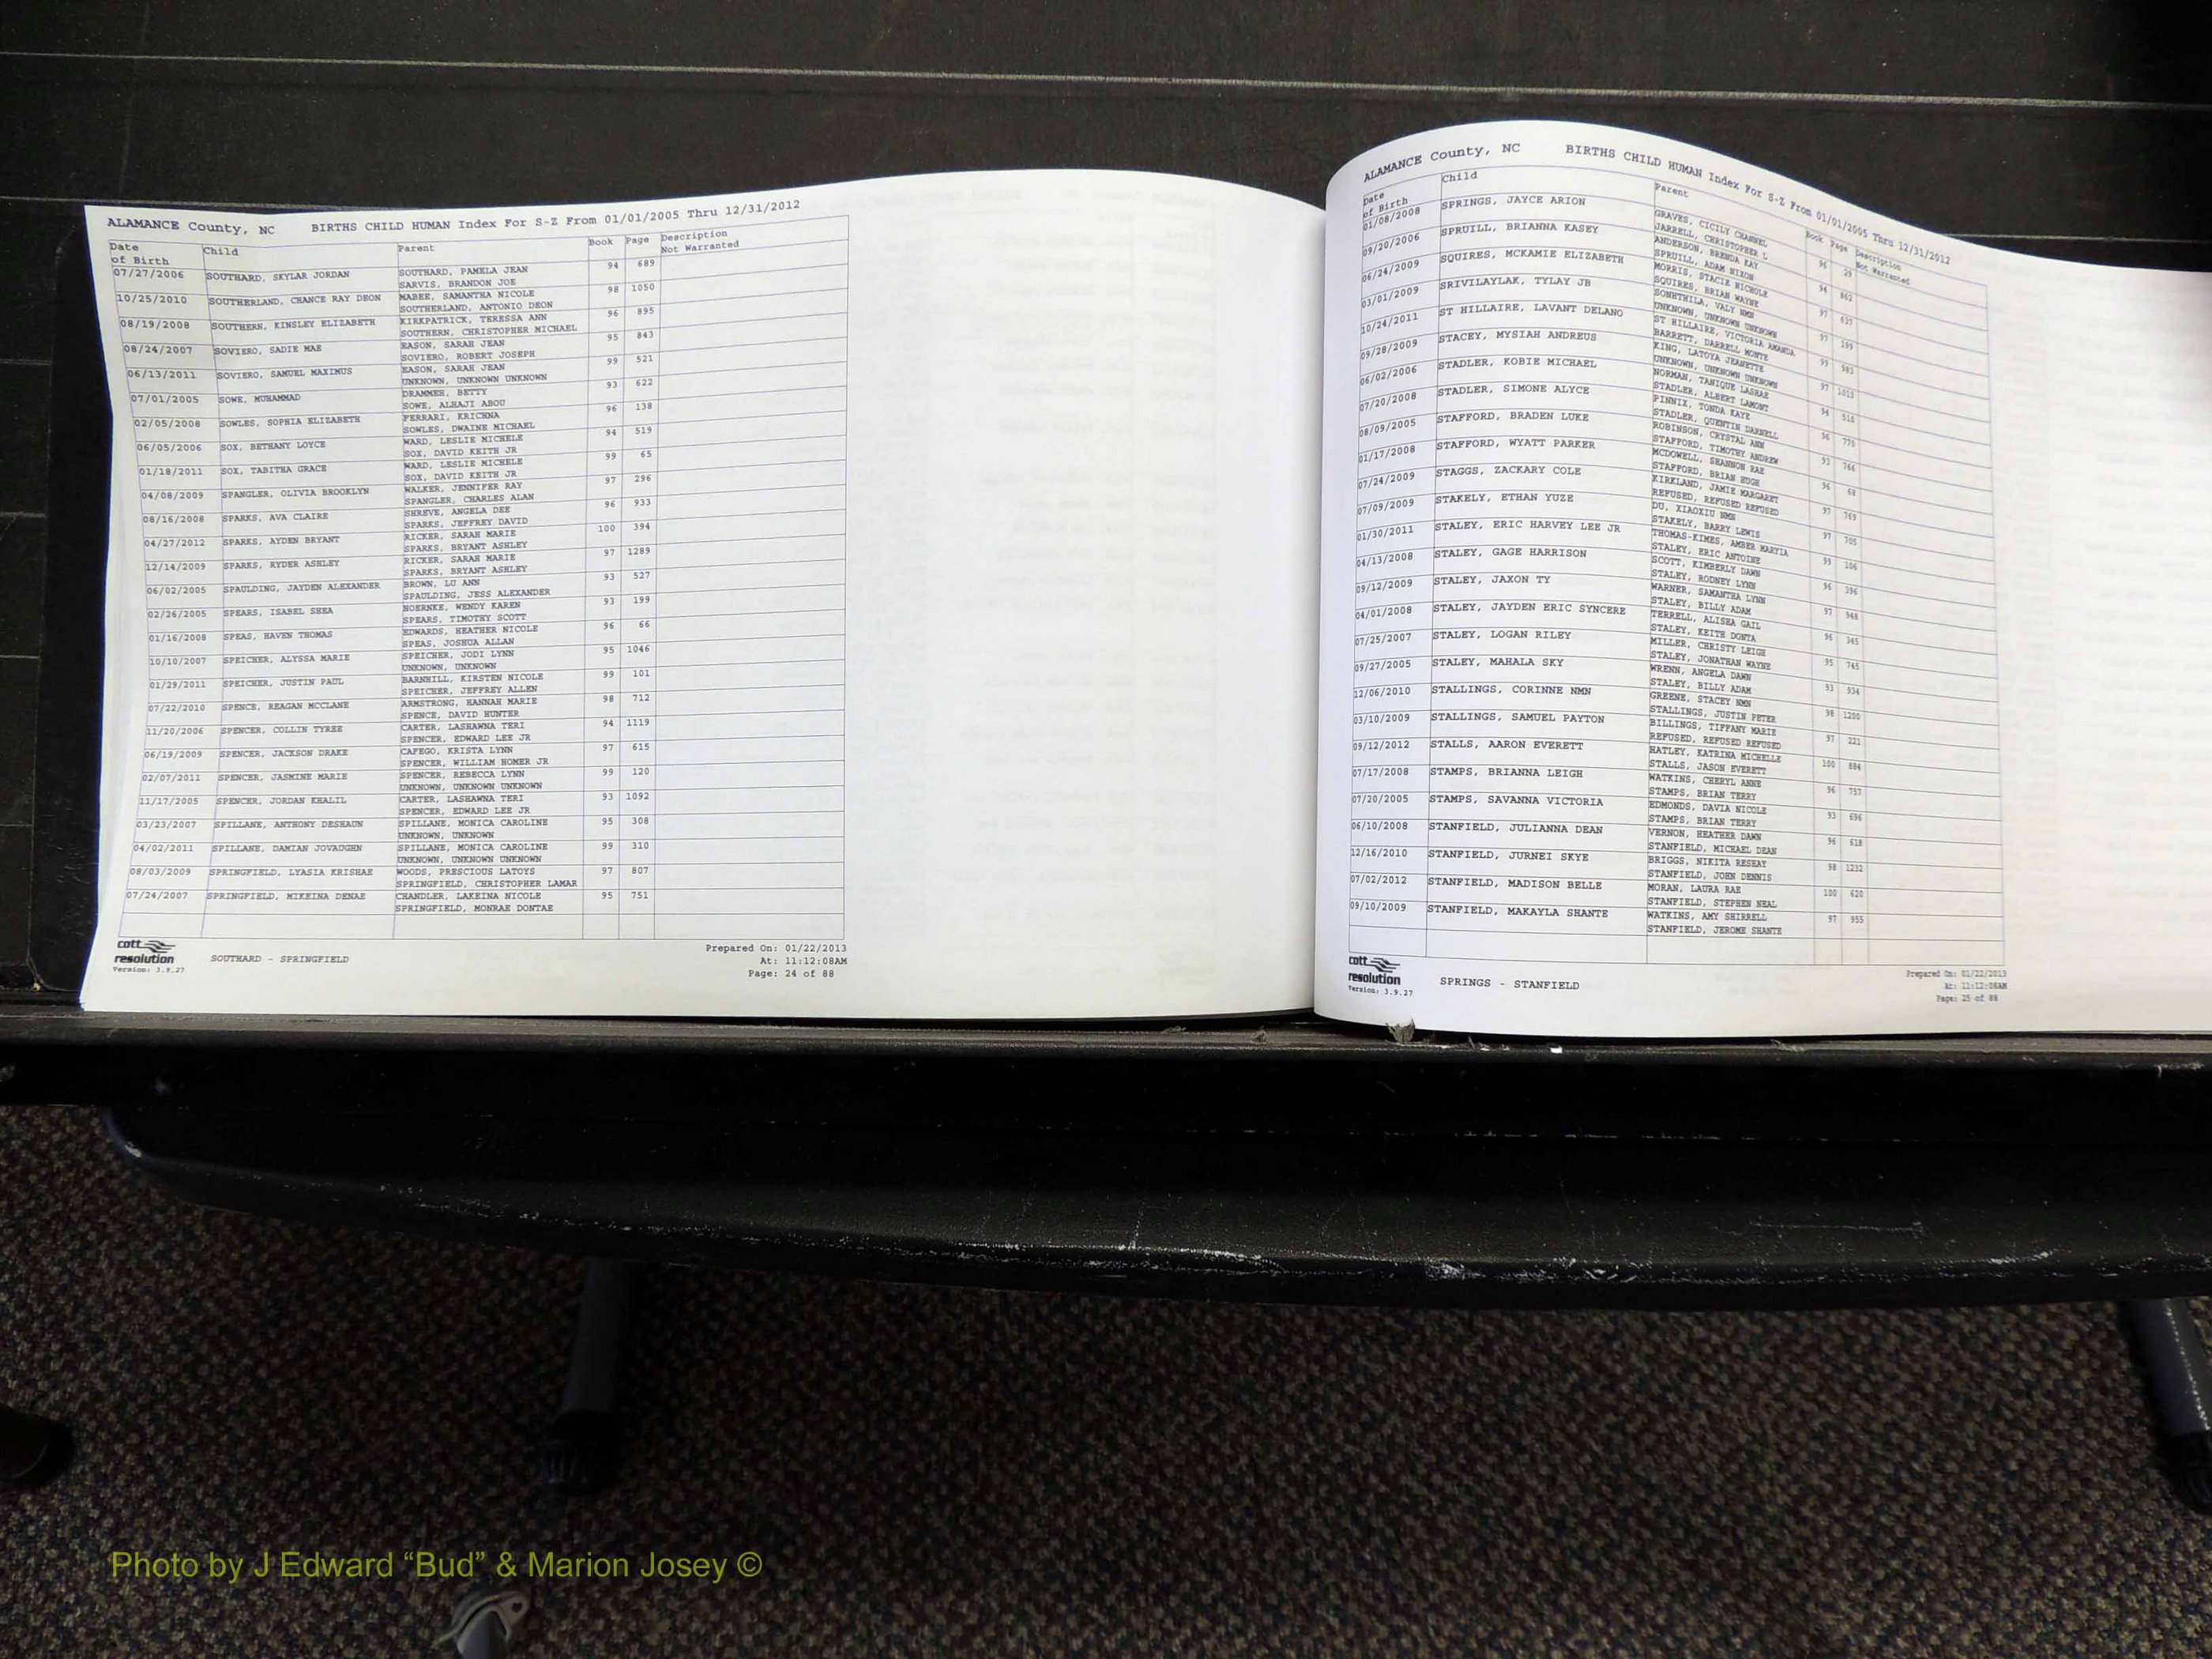 ALAMANCE County, NC BIRTHS CHILD HUMAN Index For S-Z From 01/01/2005 Thru 12/31/2012
Date of Birth Child Parent Book Page Description Not Warranted
07/27/2006 SOUTHARD, SKYLAR JORDAN SOUTHARD, PAMELA JEAN 94 689
SARVIS, BRANDON JOE
10/25/2010 SOUTHERLAND, CHANCE RAY DEON MABEE, SAMANTHA NICOLE 98 1050
SOUTHERLAND, ANTONIO DEON
08/19/2008 SOUTHERN, KINSLEY ELIZABETH KIRKPATRICK, TERESSA ANN 96 895
SOUTHERN, CHRISTOPHER MICHAEL
08/24/2007 SOVIERO, SADIE MAE EASON, SARAH JEAN 95 843
SOVIERO, ROBERT JOSEPH
06/13/2011 SOVIERO, SAMUEL MAXIMUS EASON, SARAH JEAN 99 521
UNKNOWN, UNKNOWN UNKNOWN
07/01/2005 SOWE, MUHAMMAD DRAMMEH, BETTY 93 622
SOWE, ALHAJI ABOU
02/05/2008 SOWLES, SOPHIA ELIZABETH FERRARI, KRICHNA 96 138
SOWLES, DWAINE MICHAEL
06/05/2006 SOX, BETHANY LOYCE WARD, LESLIE MICHELE 94 519
SOX, DAVID KEITH JR
01/18/2011 SOX, TABITHA GRACE WARD, LESLIE MICHELE 99 65
SOX, DAVID KEITH JR
04/08/2009 SPANGLER, OLIVIA BROOKLYN WALKER, JENNIFER RAY 97 296
SPANGLER, CHARLES ALAN
08/16/2008 SPARKS, AVA CLAIRE SHREVE, ANGELA DEE 96 933
SPARKS, JEFFREY DAVID
04/27/2012 SPARKS, AYDEN BRYANT RICKER, SARAH MARIE 100 394
SPARKS, BRYANT ASHLEY
12/14/2009 SPARKS, RYDER ASHLEY RICKER, SARAH MARIE 97 1289
SPARKS, BRYANT ASHLEY
06/02/2005 SPAULDING, JAYDEN ALEXANDER BROWN, LU ANN 93 527
SPAULDING, JESS ALEXANDER
02/26/2005 SPEARS, ISABEL SHEA HOERNKE, WENDY KAREN 93 199
SPEARS, TIMOTHY SCOTT
01/16/2008 SPEAS, HAVEN THOMAS EDWARDS, HEATHER NICOLE 96 66
SPEAS, JOSHUA ALLAN
10/10/2007 SPEICHER, ALYSSA MARIE SPEICHER, JODI LYNN 95 1046
UNKNOWN, UNKNOWN
01/29/2011 SPEICHER, JUSTIN PAUL BARNHILL, KIRSTEN NICOLE 99 101
SPEICHER, JEFFREY ALLEN
07/22/2010 SPENCE, REAGAN MCCLANE ARMSTRONG, HANNAH MARIE 98 712
SPENCE, DAVID HUNTER
11/20/2006 SPENCER, COLLIN TYREE CARTER, LASHAWNA TERI 94 1119
SPENCER, EDWARD LEE JR
06/19/2009 SPENCER, JACKSON DRAKE CAFEGO, KRISTA LYNN 97 615
SPENCER, WILLIAM HOMER JR
02/07/2011 SPENCER, JASMINE MARIE SPENCER, REBECCA LYNN 99 120
UNKNOWN, UNKNOWN UNKNOWN
11/17/2005 SPENCER, JORDAN KHALIL CARTER, LASHAWNA TERI 93 1092
SPENCER, EDWARD LEE JR
03/23/2007 SPILLANE, ANTHONY DESHAUN SPILLANE, MONICA CAROLINE 95 308
UNKNOWN, UNKNOWN
04/02/2011 SPILLANE, DAMIAN JOVAUGHN SPILLANE, MONICA CAROLINE 99 310
UNKNOWN, UNKNOWN UNKNOWN
08/03/2009 SPRINGFIELD, LYASIA KRISHAE WOODS, PRESCIOUS LATOYS 97 807
SPRINGFIELD, CHRISTOPHER LAMAR
07/24/2007 SPRINGFIELD, MIKEINA DENAE CHANDLER, LAKEINA NICOLE 95 751
SPRINGFIELD, MONRAE DONTAE
cott resolution
Version: 3.9.27
SOUTHARD - SPRINGFIELD
Prepared On: 01/22/2013
At: 11:12:08AM
Page: 24 of 88
ALAMANCE County, NC BIRTHS CHILD HUMAN Index For S-Z From 01/01/2005 Thru 12/31/2012
Date of Birth Child Parent Book Page Description Not Warranted
01/08/2008 SPRINGS, JAYCE ARION GRAVES, CICILY CHANNEL 96 29
JARRELL, CHRISTOPHER L
09/20/2006 SPRUILL, BRIANNA KASEY ANDERSON, BRENDA KAY 94 862
SPRUILL, ADAM NIXON
06/24/2009 SQUIRES, MCKAMIE ELIZABETH MORRIS, STACIE NICHOLE 97 637
SQUIRES, BRIAN WAYNE
03/01/2009 SRIVILAYLAK, TYLAY JB SONHTHILA, VALY NMN 97 199
UNKNOWN, UNKNOWN UNKNOWN
10/24/2011 ST HILLAIRE, LAVANT DELANO ST HILLAIRE, VICTORIA AMANDA 99 983
BARRETT, DARRELL MONTE
09/28/2009 STACEY, MYSIAH ANDREUS KING, LATOYA JEANETTE 97 1013
UNKNOWN, UNKNOWN UNKNOWN
06/02/2006 STADLER, KOBIE MICHAEL NORMAN, TANIQUE LASHAE 94 510
STADLER, ALBERT LAMONT
07/20/2008 STADLER, SIMONE ALYCE PINNIX, TONDA KAYE 96 776
STADLER, QUENTIN DARNELL
08/09/2005 STAFFORD, BRADEN LUKE ROBINSON, CRYSTAL ANN 93 766
STAFFORD, TIMOTHY ANDREW
01/17/2008 STAFFORD, WYATT PARKER MCDOWELL, SHANNON RAE 96 68
STAFFORD, BRIAN HUGH
07/24/2009 STAGGS, ZACKARY COLE KIRKLAND, JAMIE MARGARET 97 769
REFUSED, REFUSED REFUSED
07/09/2009 STAKELY, ETHAN YUZE DU, XIAOXIU NMN 97 705
STAKELY, BARRY LEWIS
01/30/2011 STALEY, ERIC HARVEY LEE JR THOMAS-KIMES, AMBER MARYIA 99 106
STALEY, ERIC ANTOINE
04/13/2008 STALEY, GAGE HARRISON SCOTT, KIMBERLY DAWN 96 396
STALEY, RODNEY LYNN
09/12/2009 STALEY, JAXON TY WARNER, SAMANTHA LYNN 97 948
STALEY, BILLY ADAM
04/01/2008 STALEY, JAYDEN ERIC SYNCERE TERRELL, ALISHA GAIL 96 345
STALEY, KEITH DONTA
07/25/2007 STALEY, LOGAN RILEY MILLER, CHRISTY LEIGH 95 745
STALEY, JONATHAN WAYNE
09/27/2005 STALEY, MAHALA SKY WRENN, ANGELA DAWN 93 934
STALEY, BILLY ADAM
12/06/2010 STALLINGS, CORINNE NMN GREENE, STACEY NMN 98 1200
STALLINGS, JUSTIN PETER
03/10/2009 STALLINGS, SAMUEL PAYTON BILLINGS, TIFFANY MARIE 97 221
REFUSED, REFUSED REFUSED
09/12/2012 STALLS, AARON EVERETT HATLEY, KATRINA MICHELLE 100 884
STALLS, JASON EVERETT
07/17/2008 STAMPS, BRIANNA LEIGH WATKINS, CHERYL ANNE 96 757
STAMPS, BRIAN TERRY
07/20/2005 STAMPS, SAVANNA VICTORIA EDMONDS, DAVIA NICOLE 93 696
STAMPS, BRIAN TERRY
06/10/2008 STANFIELD, JULIANNA DEAN VERNON, HEATHER DAWN 96 618
STANFIELD, MICHAEL DEAN
12/16/2010 STANFIELD, JURNEI SKYE BRIGGS, NIKITA RESHAY 98 1232
STANFIELD, JOHN DENNIS
07/02/2012 STANFIELD, MADISON BELLE MORAN, LAURA RAE 100 620
STANFIELD, STEPHEN NEAL
09/10/2009 STANFIELD, MAKAYLA SHANTE WATKINS, AMY SHIRRELL 97 955
STANFIELD, JEROME SHANTE
cott resolution
Version: 3.9.27
SPRINGS - STANFIELD
Prepared On: 01/22/2013
At: 11:12:08AM
Page: 25 of 88
Photo by J Edward “Bud” & Marion Josey ©